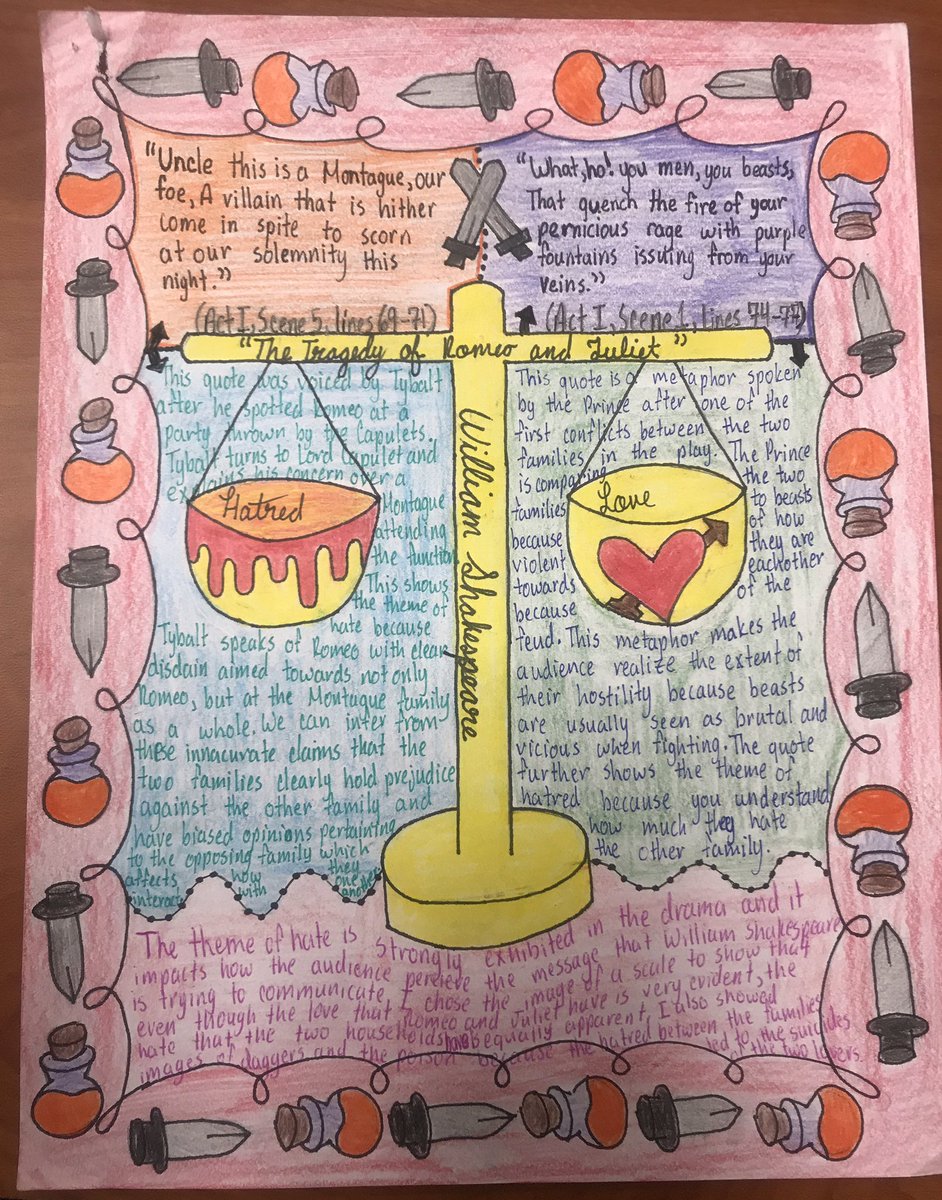 "Uncle this is a Montague, our
foe, A villain that is hither
come in spite to scorn
at our solemnity this
night."
(Act I, Scene 5, lines 69-71)
"What, ho! you men, you beasts,
That quench the fire of your
pernicious rage with purple
fountains issuing from your
veins."
(Act I, Scene 1, Lines 74-77)
"The Tragedy of Romeo and Juliet"
William Shakespeare
This quote was voiced by Tybalt
after he spotted Romeo at a
party thrown by the Capulets.
Tybalt turns to Lord Capulet and
explains his concern over a
Montague
attending
the function.
This shows
the theme of
hate because
Tybalt speaks of Romeo with clear
disdain aimed towards not only
Romeo, but at the Montague family
as a whole. We can infer from
these innacurate claims that the
two families clearly hold prejudice
against the other family and
have biased opinions pertaining
to the opposing family which
affects how they
interact with one
another
Hatred
This quote is a metaphor spoken
by the Prince after one of the
first conflicts between the two
families in the play. The Prince
is comparing the two
families to beasts
because of how
violent they are
towards eachother
because of the
feud. This metaphor makes the
audience realize the extent of
their hostility because beasts
are usually seen as brutal and
vicious when fighting. The quote
further shows the theme of
hatred because you understand
how much they hate
the other family.
Love
The theme of hate is strongly exhibited in the drama and it
impacts how the audience percieve the message that William Shakespeare
is trying to communicate. I chose the image of a scale to show that
even though the love that Romeo and Juliet have is very evident, the
hate that the two households have is equally apparent. I also showed
images of daggers and the poison because the hatred between the families
led to the suicides
of the two lovers.